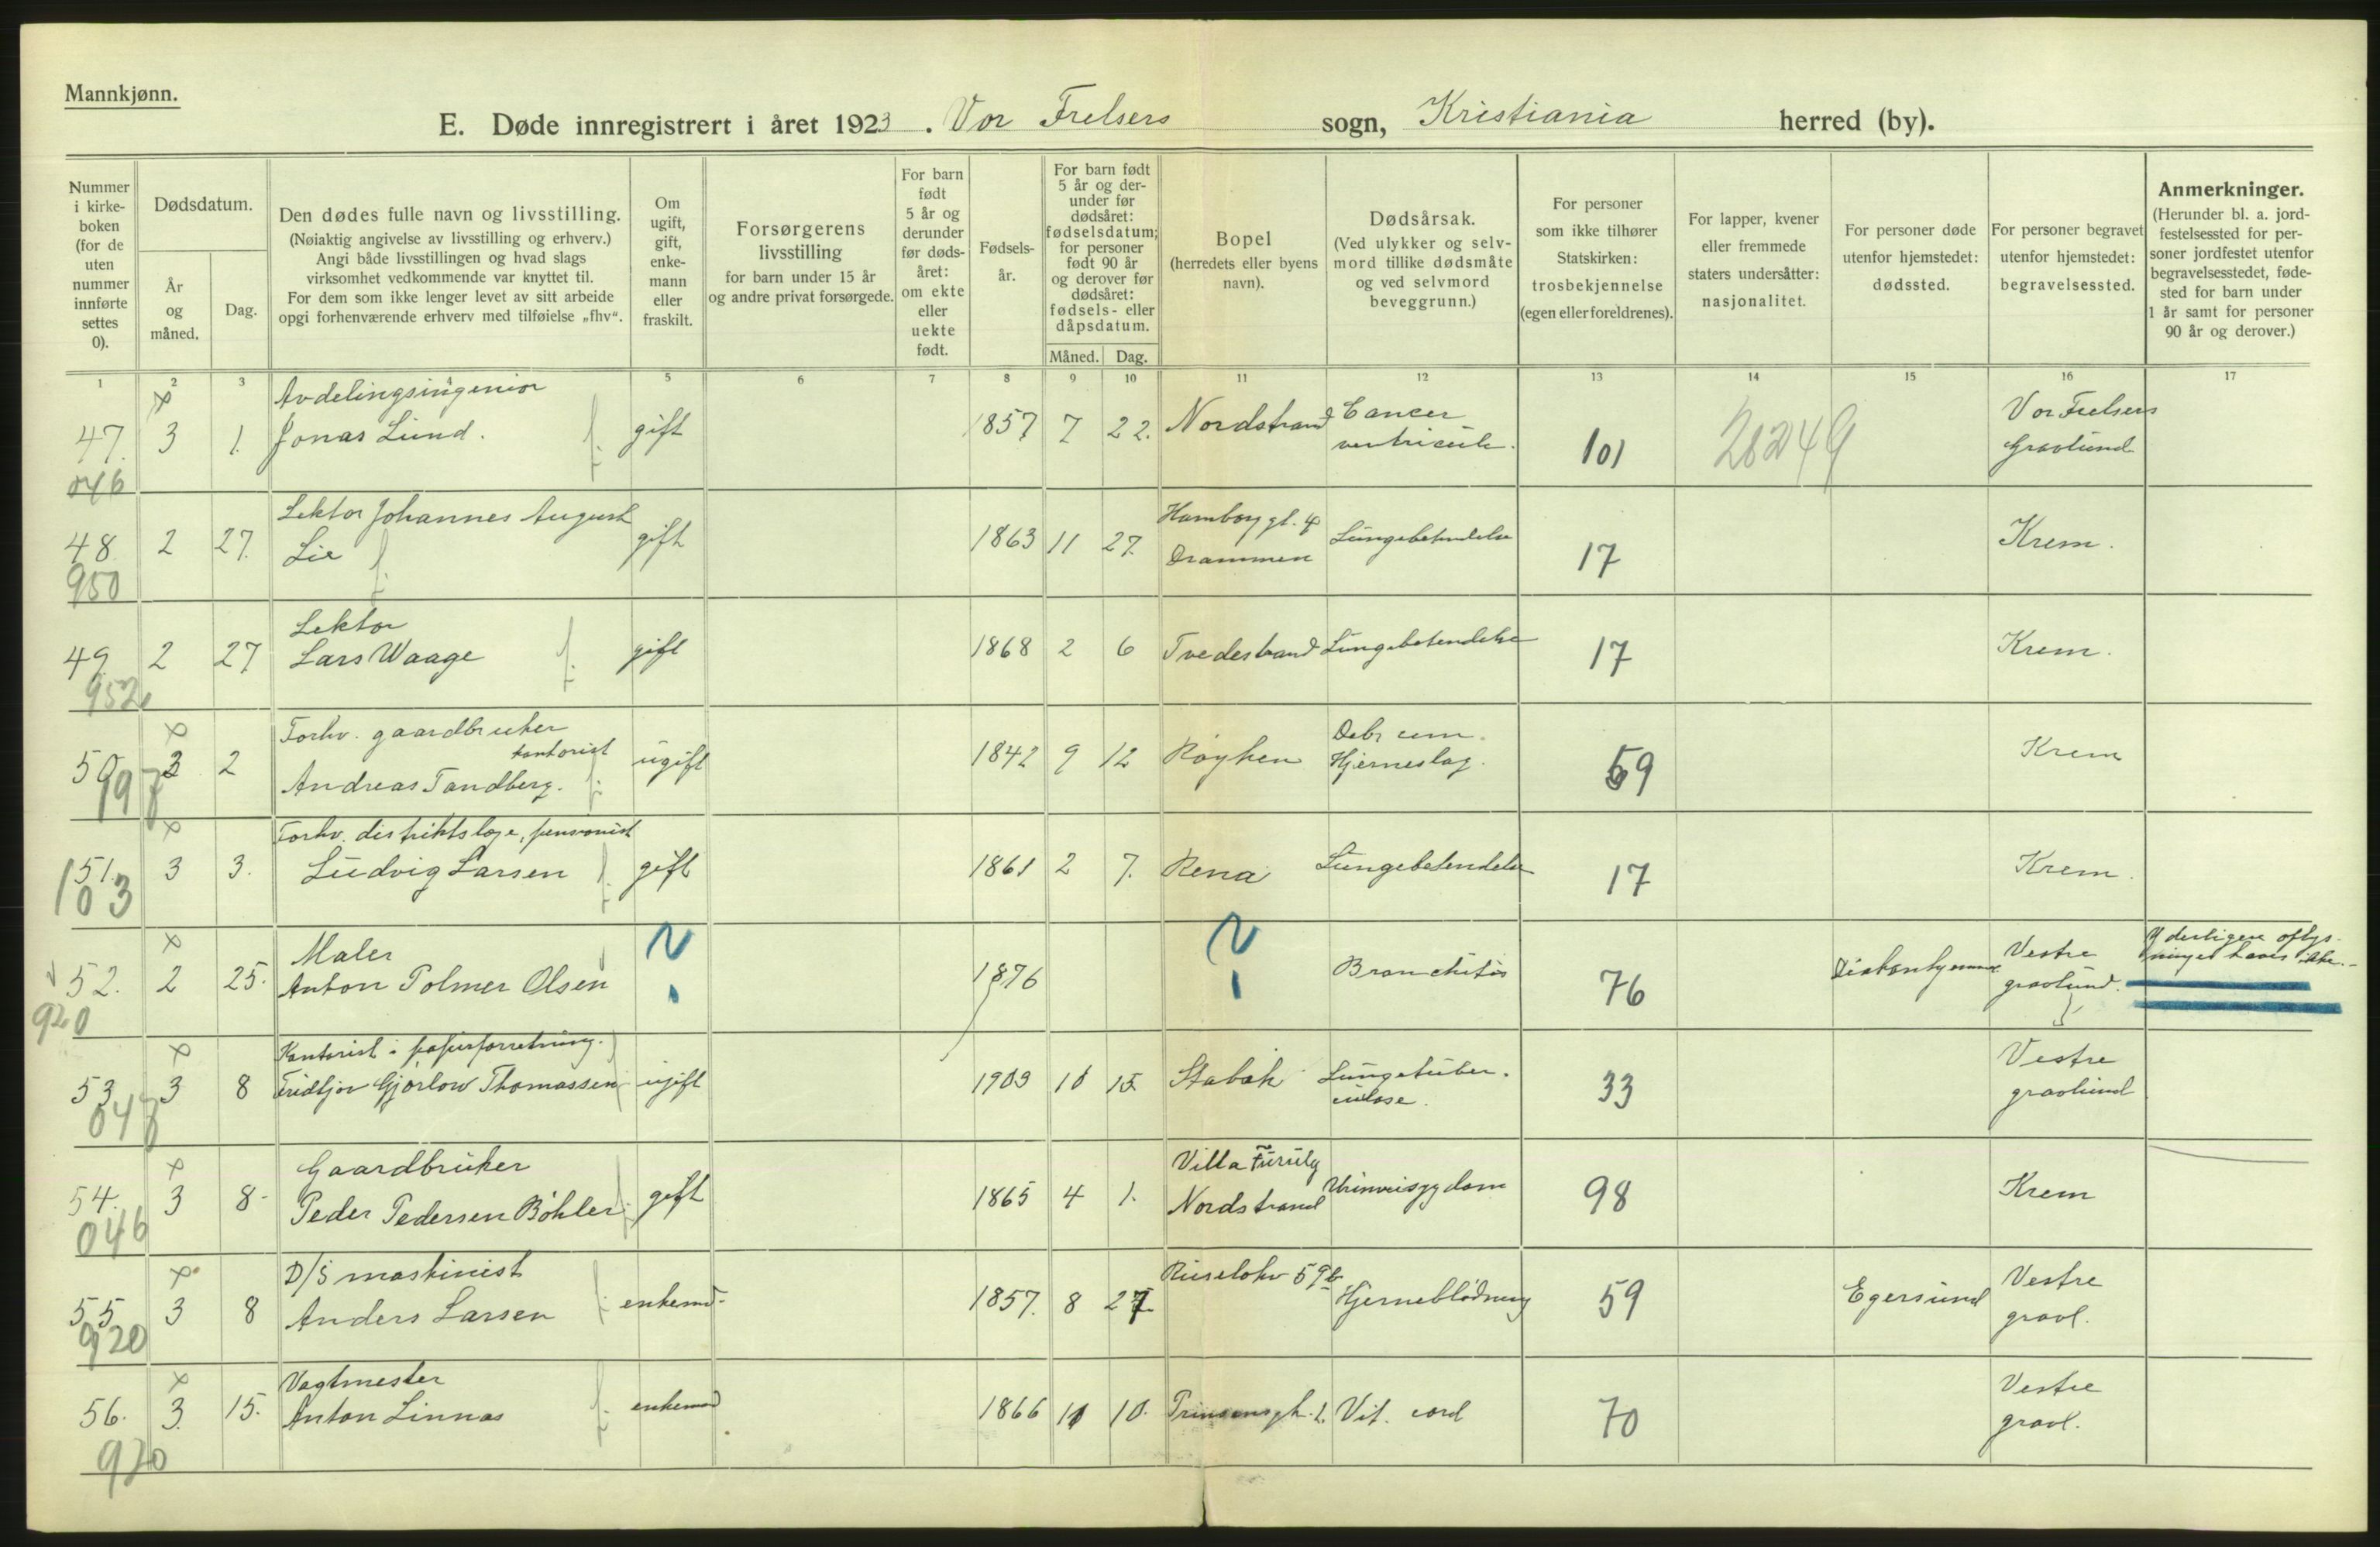 Mannkjønn.
E. Døde innregistrert i året 1923. Vor Frelsers sogn, Kristiania herred (by).
Nummer i kirke-boken (for de uten nummer innførte settes 0).
Dødsdatum.
År og måned.
Dag.
Den dødes fulle navn og livsstilling.
(Nøiaktig angivelse av livsstilling og erhverv.)
Angi både livsstillingen og hvad slags
virksomhet vedkommende var knyttet til.
For dem som ikke lenger levet av sitt arbeide
opgi forhenværende erhverv med tilføielse „fhv“.
Om ugift, gift, enke-mann eller fraskilt.
Forsørgerens livsstilling
for barn under 15 år
og andre privat forsørgede.
For barn født 5 år og derunder før døds-året: om ekte eller uekte født.
Fødsels-år.
For barn født 5 år og der-under før dødsåret: fødselsdatum; for personer født 90 år og derover før dødsåret: fødsels- eller dåpsdatum.
Måned.
Dag.
Bopel
(herredets eller byens navn).
Dødsårsak.
(Ved ulykker og selv-mord tillike dødsmåte og ved selvmord beveggrunn.)
For personer som ikke tilhører Statskirken: trosbekjennelse (egen eller foreldrenes).
For lapper, kvener eller fremmede staters undersåtter: nasjonalitet.
For personer døde utenfor hjemstedet: dødssted.
For personer begravet utenfor hjemstedet: begravelsessted.
Anmerkninger.
(Herunder bl. a. jord-festelsessted for per-soner jordfestet utenfor begravelsesstedet, føde-sted for barn under 1 år samt for personer 90 år og derover.)
1 2 3 4 5 6 7 8 9 10 11 12 13 14 15 16 17
Avdelingsingeniør
47. 3 1. Jonas Lund. gift 1857 7 22. Nordstrand Cancer ventricule. 101 20249 Vor Frelsers Gravlund
046
Lektor Johannes August
48 2 27. Lie gift 1863 11 27. Hamborggt. 4 Drammen Lungebetendelse 17 Krem.
950
Lektor
49 2 27 Lars Waage gift 1868 2 6 Tvedestrand Lungebetendelse 17 Krem.
952
Forhv. gaardbruker
kontorist
50 3 2 Andreas Tandberg. ugift 1842 9 12 Røyken Hjerneslag. 59 Krem
997
Forhv. distriktslæge, pensionist
51. 3 3. Ludvig Larsen gift 1861 2 7. Rena Lungebetendelse 17 Krem.
103
Maler
52. 2 25. Anton Polmer Olsen ? 1876 ? Bronchitis 76 Diakonhjemmet Vestre gravlund. Yderligere oplys-ninger haves ikke.
920
Kontorist i papirforretning.
53 3 8 Fridtjov Gjørlow Thomassen ugift 1903 10 15 Stabæk Lungetuber-culose. 33 Vestre gravlund
048
Gaardbruker
54. 3 8 Peder Pedersen Bøhler gift 1865 4 1. Villa Furuly Nordstrand Urinveissygdom 98 Krem
046
D/S maskinist
55 3 8 Anders Larsen enkemd. 1857. 8 27 Ruseløkv 59b Hjerneblødning 59 Egersund Vestre gravl.
920
Vagtmester
56. 3. 15. Anton Linnas enkemd 1866 10 10. Prinsensgt. 2. Vit. cord 70 Vestre gravl.
920